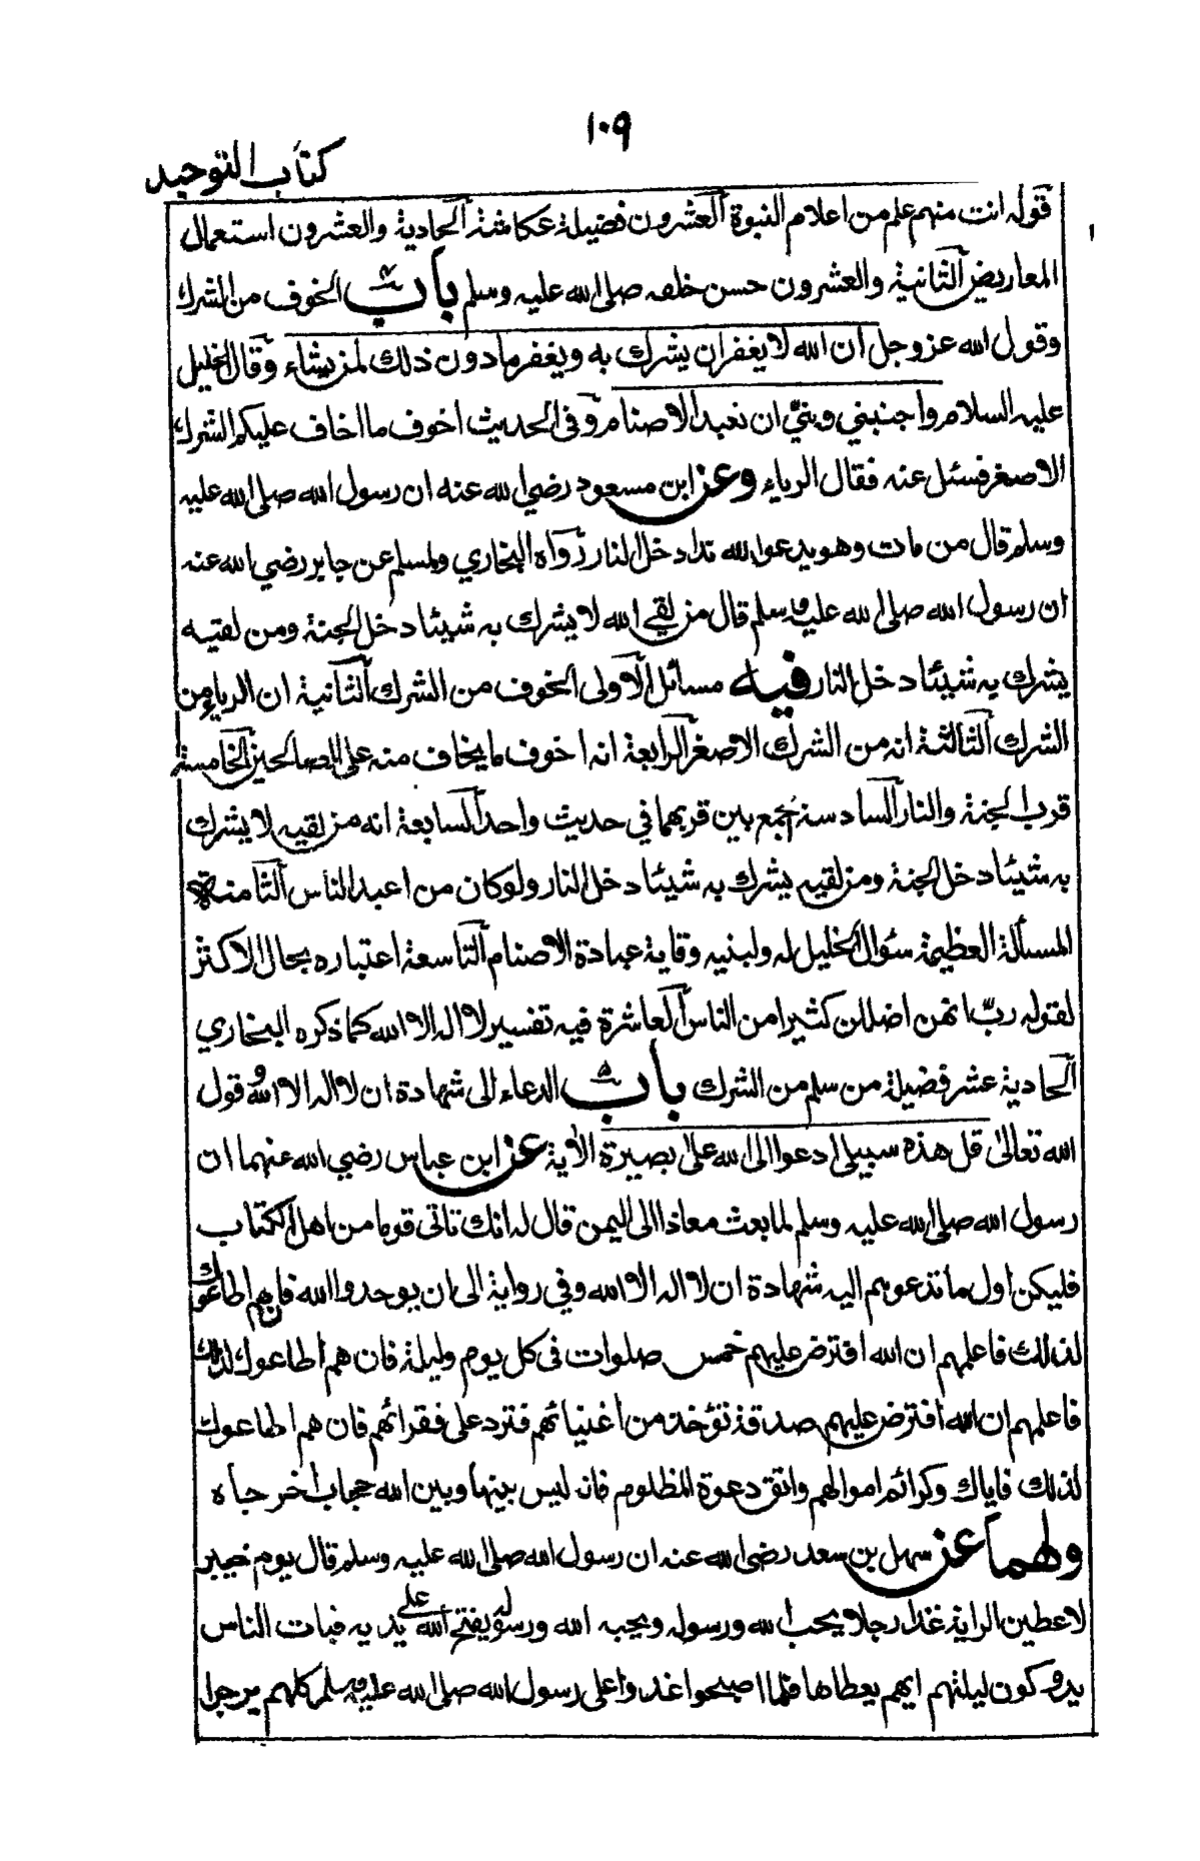 ١٠٩
كتاب التوحيد
قوله انت منهم علم من اعلام النبوة العشرون فضيلة عكاشة الحادية والعشرون استعمال
المعاريض الثانية والعشرون حسن خلقه صلى الله عليه وسلم باب ٤ الخوف من الشرك
وقول الله عز وجل ان الله لا يغفر ان يشرك به ويغفر ما دون ذلك لمن يشاء وقال الخليل
عليه السلام واجنبني وبنيّ ان نعبد الاصنام وفى الحديث اخوف ما اخاف عليكم الشرك
الاصغر فسئل عنه فقال الرياء وعن ابن مسعود رضي الله عنه ان رسول الله صلى الله عليه
وسلم قال من مات وهو يدعو الله ندا دخل النار رواه البخاري ولمسلم عن جابر رضي الله عنه
ان رسول الله صلى الله عليه وسلم قال من لقي الله لا يشرك به شيئا دخل الجنة ومن لقيه
يشرك به شيئا دخل النار فيه مسائل الاولى الخوف من الشرك الثانية ان الرياء من
الشرك الثالثة انه من الشرك الاصغر الرابعة انه اخوف ما يخاف منه على الصالحين الخامسة
قرب الجنة والنار السادسة الجمع بين قربهما في حديث واحد السابعة انه من لقيه لا يشرك
به شيئا دخل الجنة ومن لقيه يشرك به شيئا دخل النار ولو كان من اعبد الناس الثامنة
المسألة العظيمة سؤال الخليل له ولبنيه وقاية عبادة الاصنام التاسعة اعتباره بحال الاكثر
لقوله ربّ انهن اضللن كثيرا من الناس العاشرة فيه تفسير لا اله الا الله كما ذكره البخاري
الحادية عشر فضيلة من سلم من الشرك باب ٥ الدعاء الى شهادة ان لا اله الا الله وقول
الله تعالى قل هذه سبيلي ادعو الى الله على بصيرة الأية عن ابن عباس رضي الله عنهما ان
رسول الله صلى الله عليه وسلم لما بعث معاذا الى اليمن قال له انك تاتى قوما من اهل الكتاب
فليكن اول ما تدعوهم اليه شهادة ان لا اله الا الله وفي رواية الى ان يوحدوا الله فان هم اطاعوك
لذلك فاعلمهم ان الله افترض عليهم خمس صلوات فى كل يوم وليلة فان هم اطاعوك لذلك
فاعلمهم ان الله افترض عليهم صدقة تؤخذ من اغنيائهم فترد على فقرائهم فان هم اطاعوك
لذلك فاياك وكرائم اموالهم واتق دعوة المظلوم فانه ليس بينها وبين الله حجاب اخرجاه
ولهما عن سهل بن سعد رضى الله عنه ان رسول الله صلى الله عليه وسلم قال يوم خيبر
لاعطين الراية غدا رجلا يحب الله ورسوله ويحبه الله ورسوله يفتح الله على يديه فبات الناس
يدوكون ليلتهم ايهم يعطاها فلما اصبحوا غدوا على رسول الله صلى الله عليه وسلم كلهم يرجوا